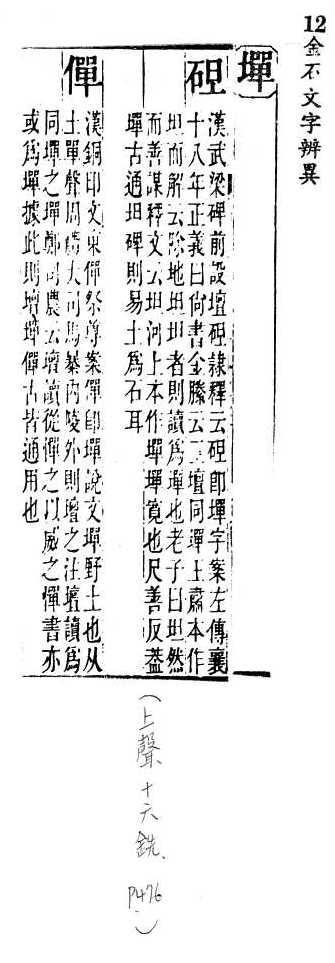 12金石文字辨異
墠
䃪
漢武梁碑前設壇䃪隸釋云䃪即墠字案左傳襄
十八年正義曰尚書金縢云三壇同墠王肅本作
坦而解云除地坦坦者則讀為墠也老子曰坦然
而善謀釋文云坦河上本作墠墠寬也尺善反葢
墠古通坦碑則易土為石耳
僤
漢銅印文東僤祭尊案僤即墠說文墠野土也从
土單聲周禮大司馬暴內陵外則壇之注壇讀為
同墠之墠鄭司農云壇讀從憚之以威之憚書亦
或為墠據此則壇墠僤古皆通用也
(上聲十六銑、P476)